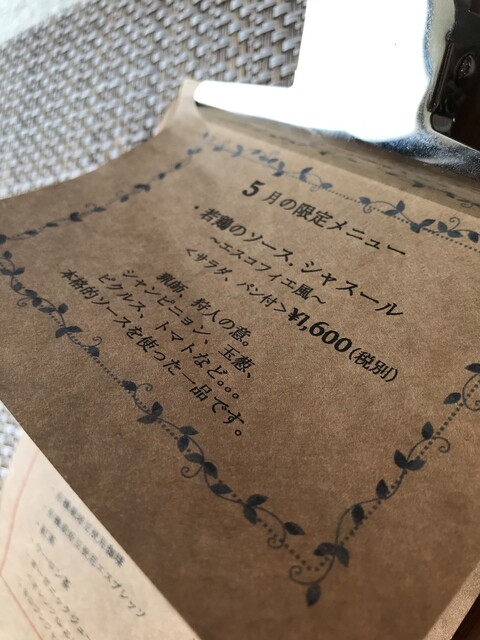 5月の限定メニュー
・若鶏のソース、シャスール
～エスコフィエ風～
<サラダ、パン付>¥1,600(税別)
猟師、狩人の意。
シャンピニョン、玉葱、
ピクルス、トマトなど。。。
本格的ソースを使った一品です。
・紅茶
ウーロン茶